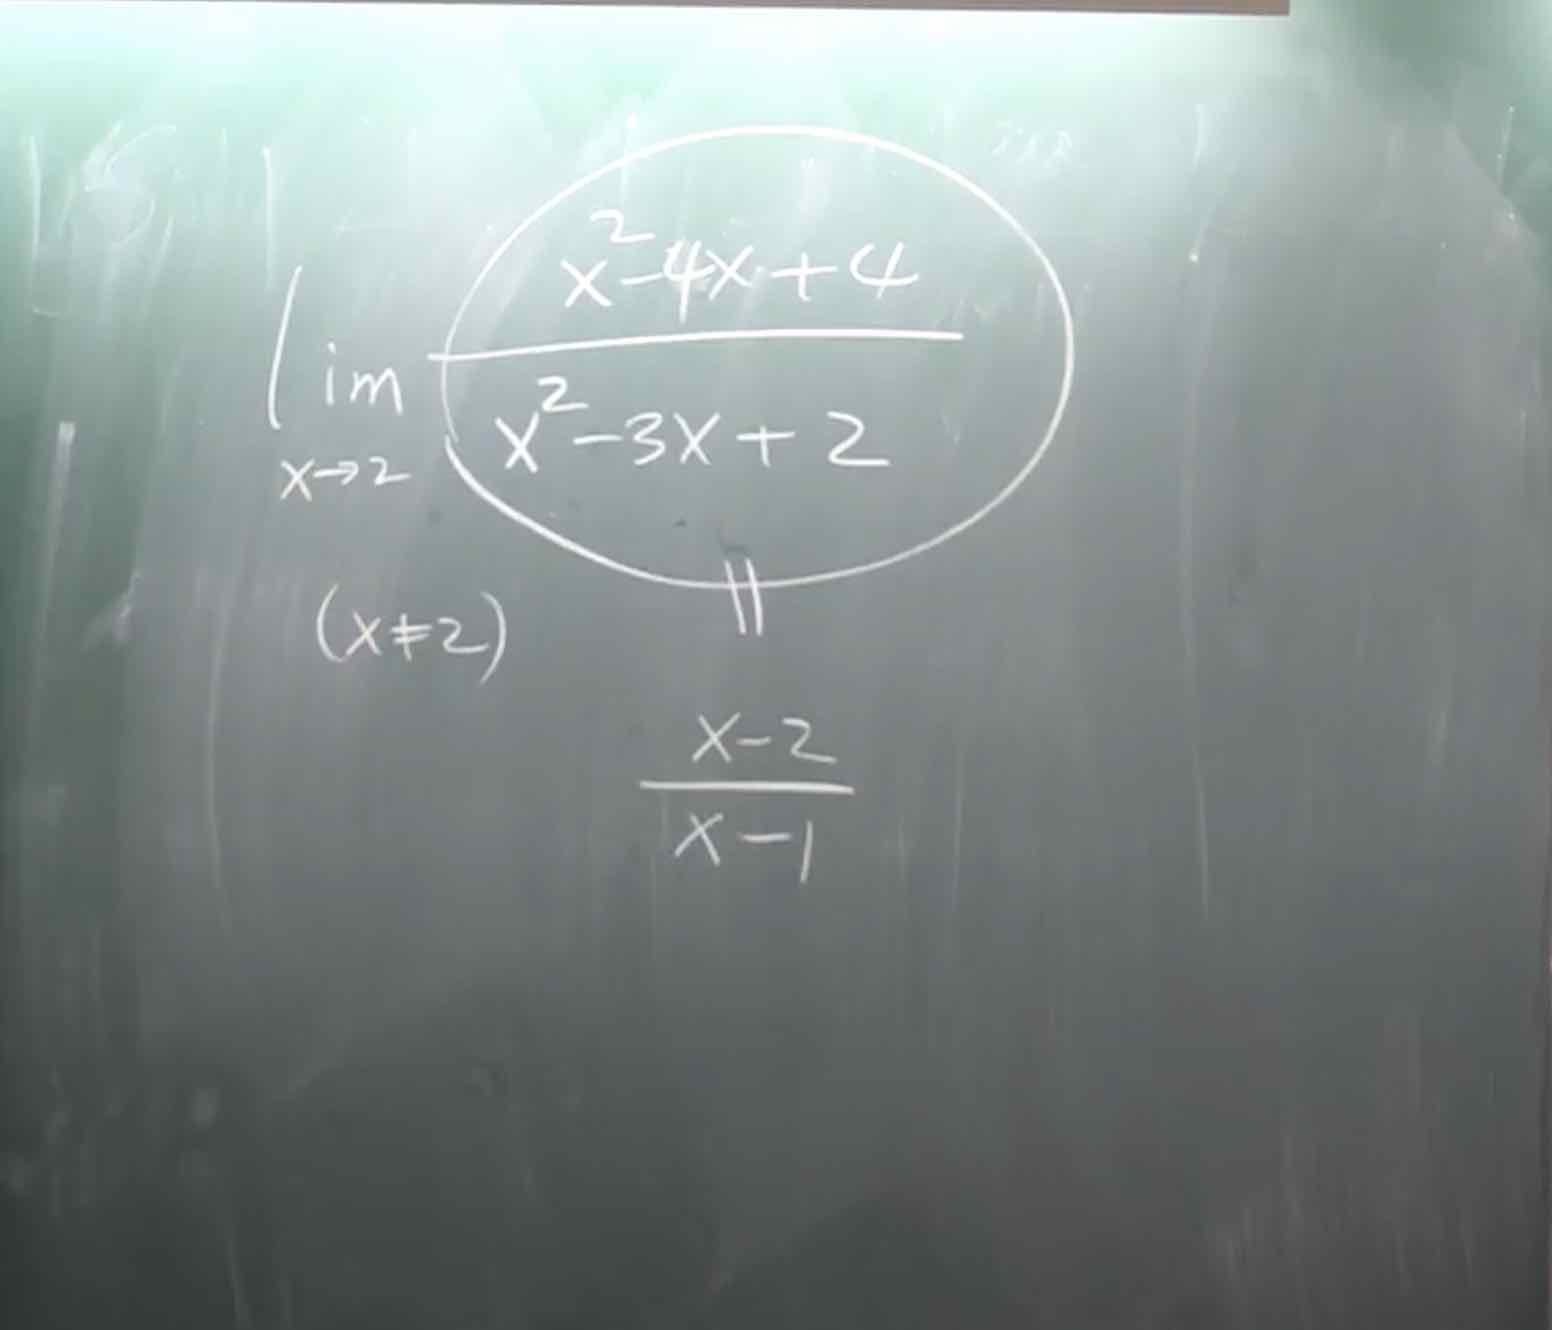 lim x→2 (x²-4x+4)/(x²-3x+2)
(x≠2) ||
(x-2)/(x-1)